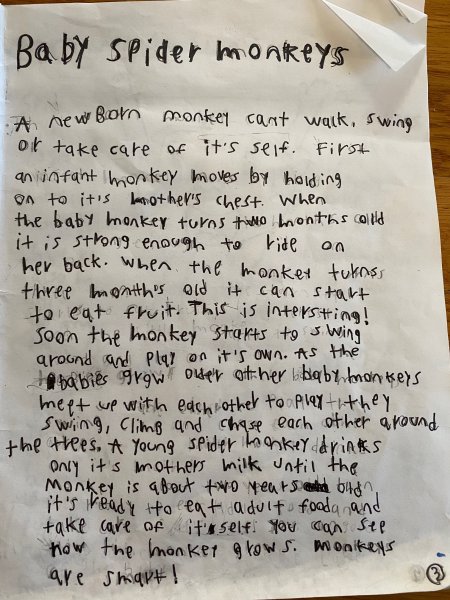 Baby spider monkeys
A newBorn monkey cant walk, swing
or take care of it's self. First
an infant monkey moves by holding
on to it's mother's chest. When
the baby monkey turns two months old
it is strong enough to ride on
her back. When the monkey turns
three month's old it can start
to eat fruit. This is intersting!
Soon the monkey starts to swing
around and play on it's own. As the
babies grow older other baby monkeys
meet up with each other to play they
swing, climb and chase each other around
the trees. A young spider monkey drinks
only it's mothers milk until the
monkey is about two years old
it's ready to eat adult food and
take care of it's self you can see
how the monkey grows. monkeys
are smart!
3